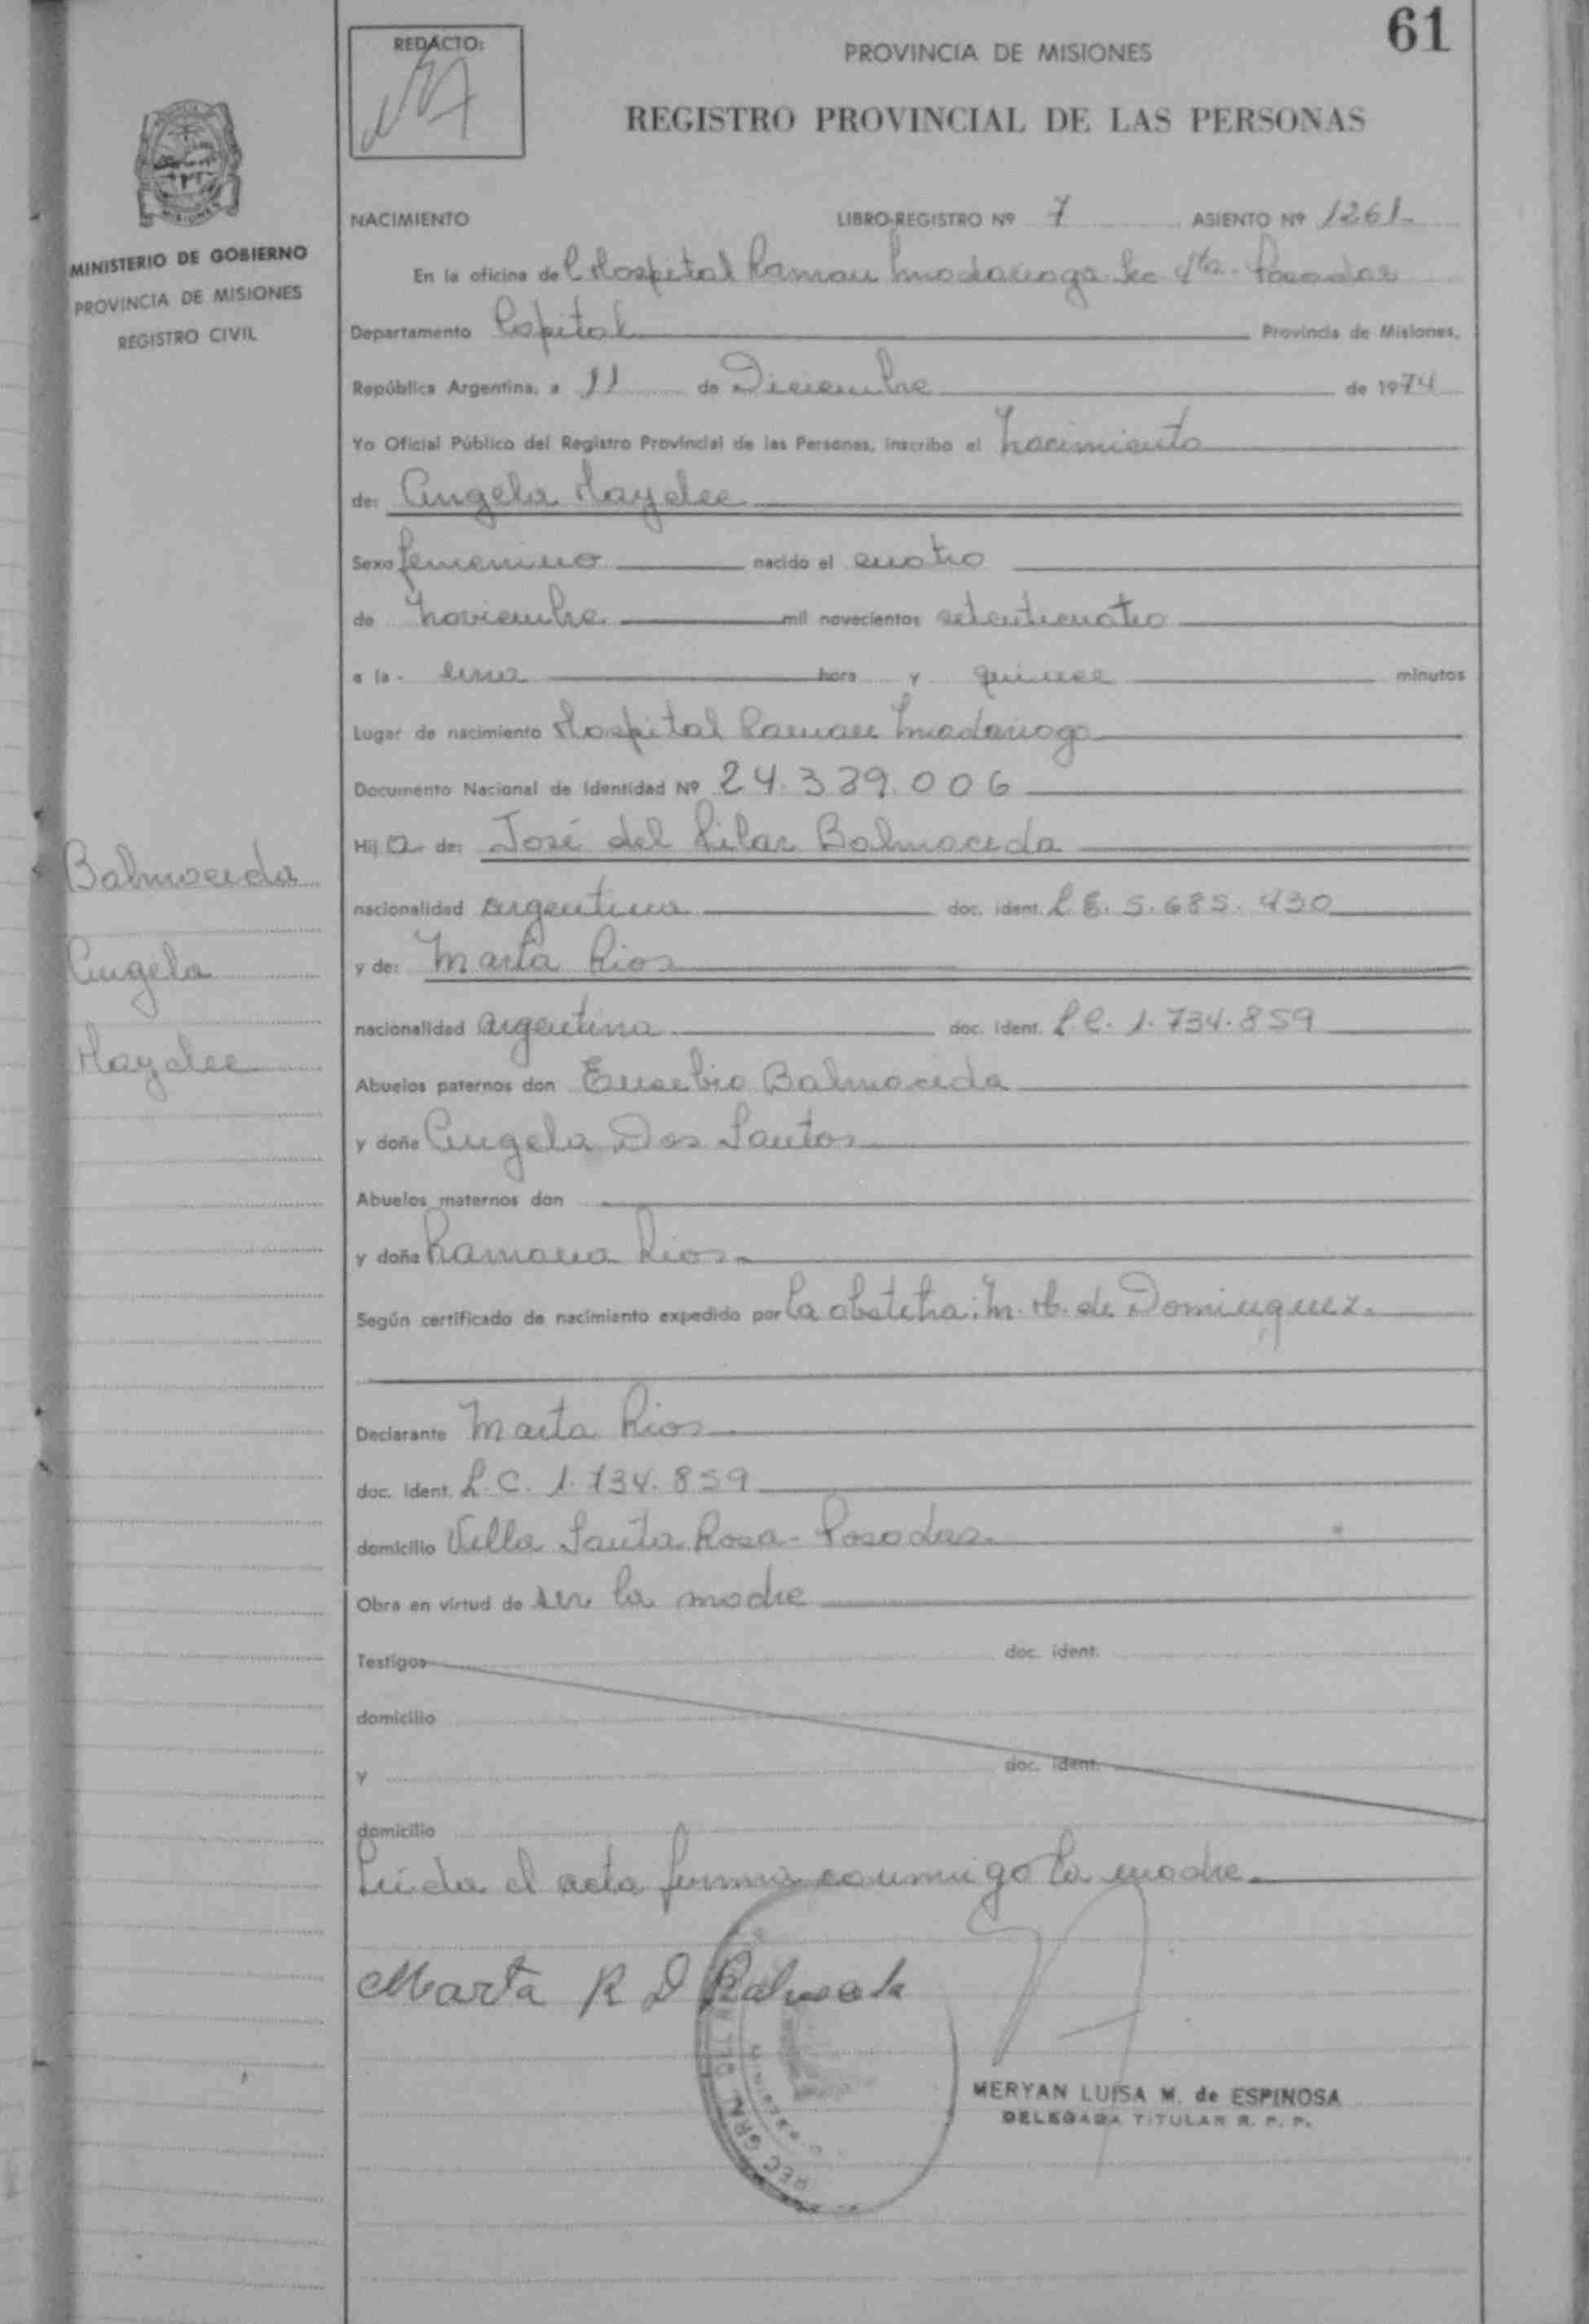 61
REDACTO:
PROVINCIA DE MISIONES
REGISTRO PROVINCIAL DE LAS PERSONAS
MISIONES
MINISTERIO DE GOBIERNO
PROVINCIA DE MISIONES
REGISTRO CIVIL
NACIMIENTO LIBRO-REGISTRO Nº 7 ASIENTO Nº 1261-
En la oficina del Hospital Ramon Madariaga Sec. 4ta. Posadas
Departamento Capital Provincia de Misiones,
República Argentina, a 11 de Diciembre de 1974
Yo Oficial Público del Registro Provincial de las Personas, inscribo el nacimiento
de: Angela Haydee
Sexo femenino nacido el cuatro
de noviembre mil novecientos setenticuatro
a la - una hora y quince minutos
Lugar de nacimiento Hospital Ramon Madariaga
Documento Nacional de Identidad Nº 24.339.006
Hij a de: José del Pilar Balmaceda
nacionalidad argentina doc. ident. L.E. 5.685.430
y de: Marta Rios
nacionalidad argentina doc. ident. L.C. 1.734.859
Abuelos paternos don Eusebio Balmaceda
y doña Angela Dos Santos
Abuelos maternos don
y doña Ramona Rios
Según certificado de nacimiento expedido por la obstetra: M. H. de Dominguez.
Declarante Marta Rios
doc. ident. L.C. 1.734.859
domicilio Villa Santa Rosa - Posadas.
Obra en virtud de ser la madre
Testigos doc. ident.
domicilio
y doc. ident.
domicilio
Leida el acta firma conmigo la madre.
Marta R D Balmaceda
MERYAN LUISA M. de ESPINOSA
DELEGADA TITULAR R. P. P.
Balmaceda
Angela
Haydee